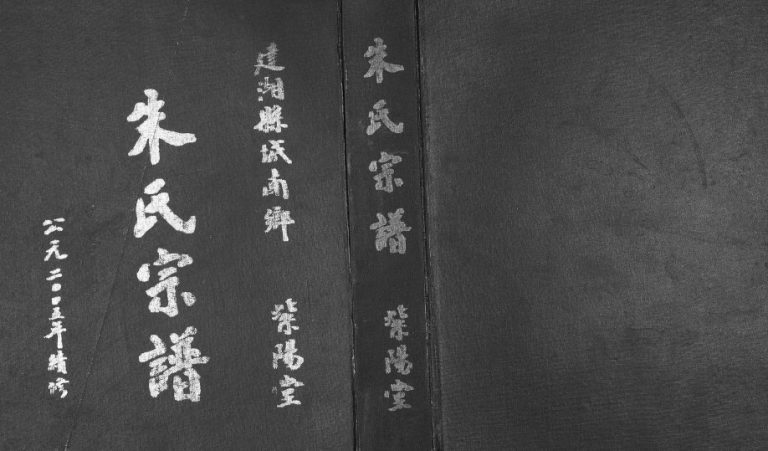 建湖縣城南鄉 紫陽堂
朱氏宗譜
公元二00五年續修
朱氏宗譜 紫陽堂